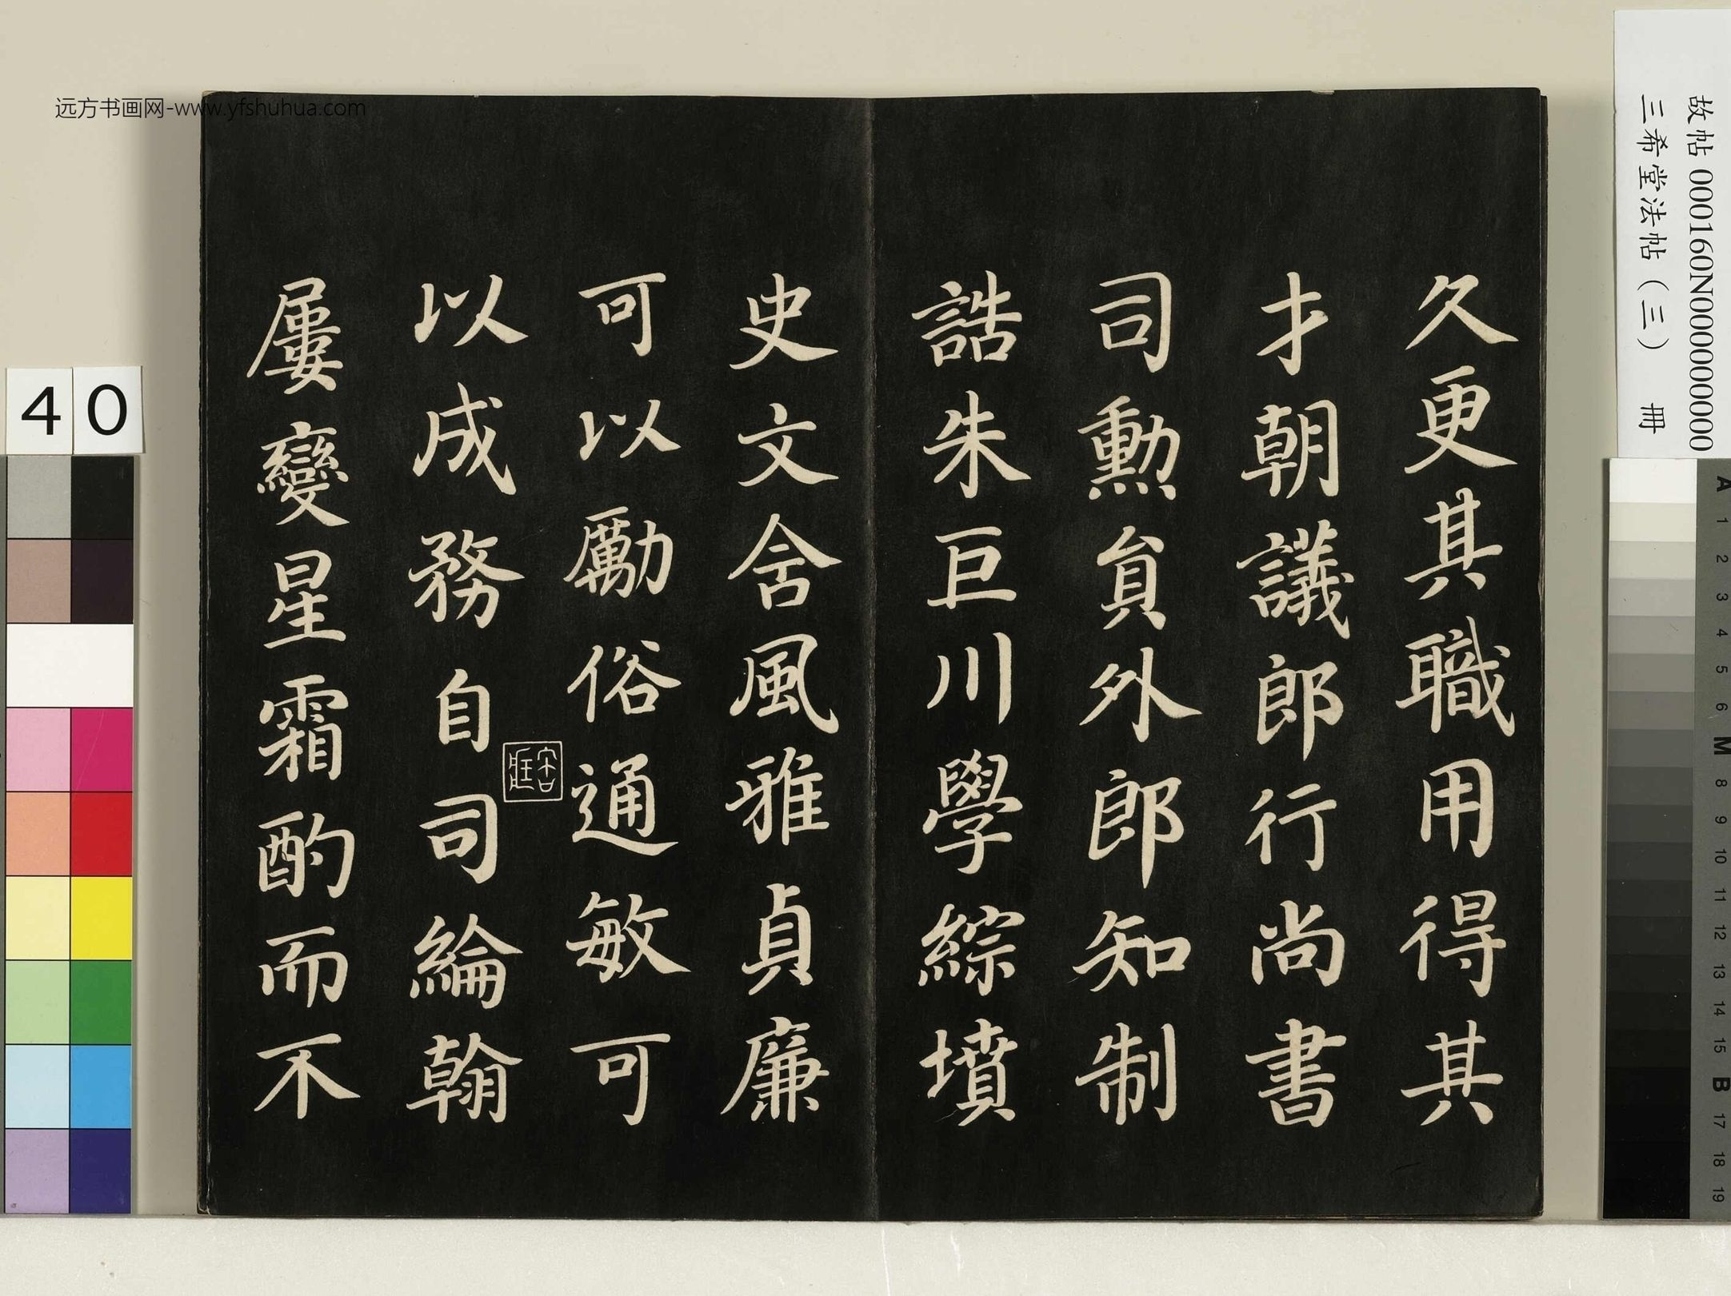 久更其職用得其
才朝議郎行尚書
司勳員外郎知制
誥朱巨川學綜墳
史文含風雅貞廉
可以勵俗通敏可
以成務自司綸翰
屢變星霜酌而不
远方书画网-www.yfshuhua.com
故帖 000160N000000000
三希堂法帖（三） 冊
40
A 1 2 3 4 5 6 M 8 9 10 11 12 13 14 15 B 17 18 19